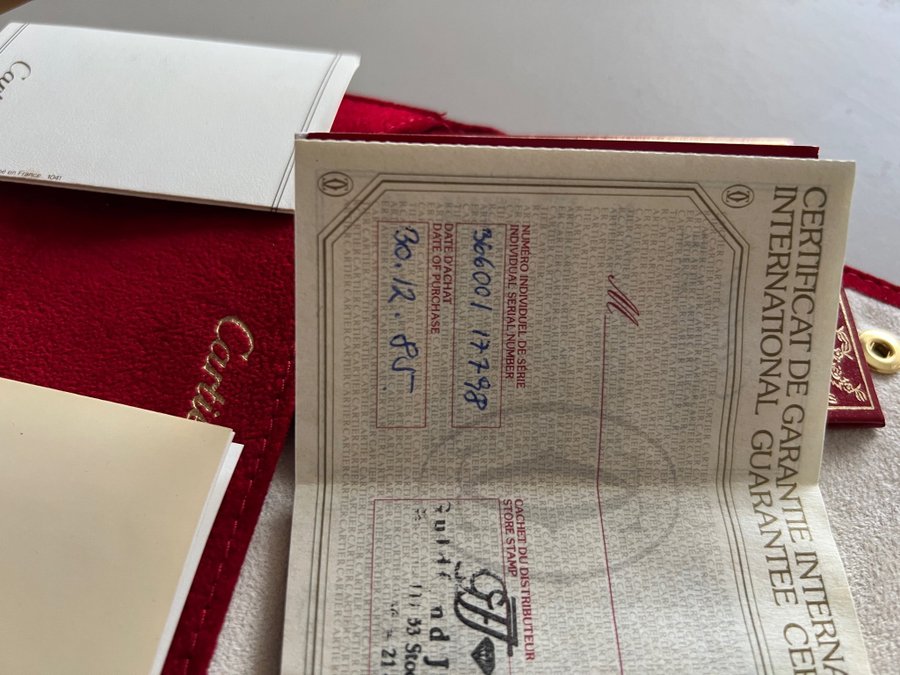 Cartier
CERTIFICAT DE GARANTIE INTERNA
INTERNATIONAL GUARANTEE CER
M
NUMÉRO INDIVIDUEL DE SÉRIE
INDIVIDUAL SERIAL NUMBER
366001 17798
DATE D'ACHAT
DATE OF PURCHASE
30.12.85
CACHET DU DISTRIBUTEUR
STORE STAMP
en France 1041
Cartie